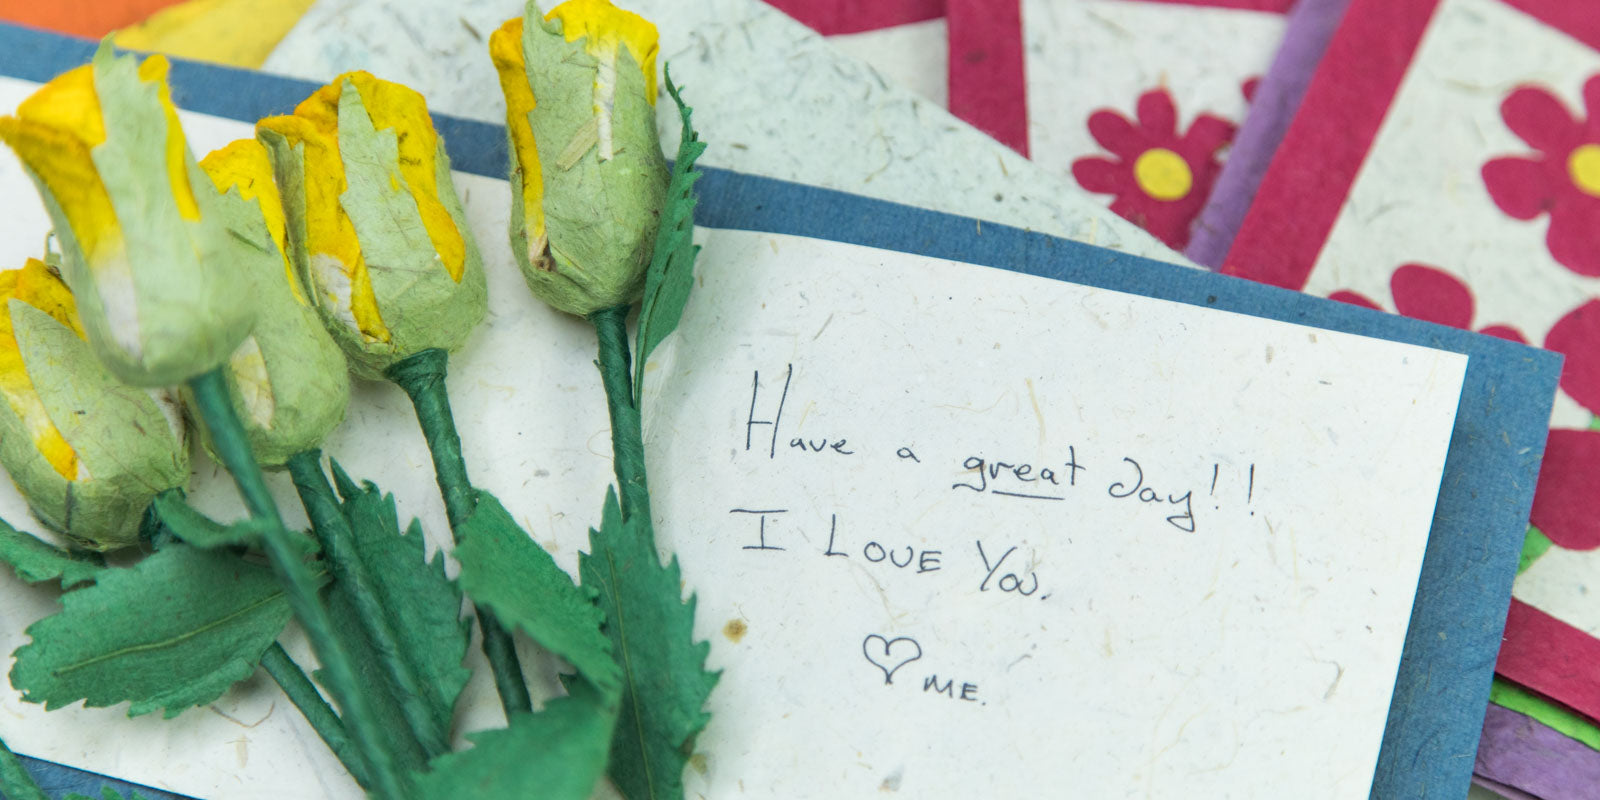 Have a great Day!!
I LOVE YOU.
♡ ME.